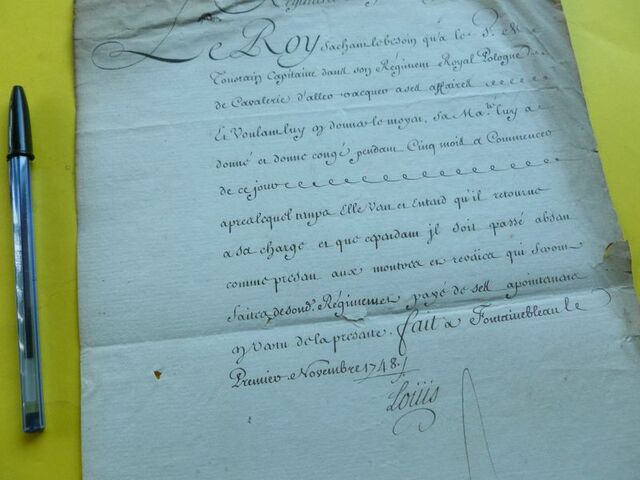 Le Roy Sachant le besoin qu'a le S. De
Toustain Capitaine dans son Régiment Royal Pologne
de Cavalerie d'aller vacquer a ses affaires
Et Voulant luy en donner le moyen, Sa Ma.té luy a
donné et donne congé pendant Cinq mois a Commencer
de ce jour
apres lequel temps Elle Veut et Entend qu'il retourne
a sa charge et que cependant il soit passé absent
comme present aux montres et reveües qui seront
faites de sond. Régiment et payé de ses apointemens
en vertu de la presente. fait a Fontainebleau le
Premier Novembre 1748.
Loüis